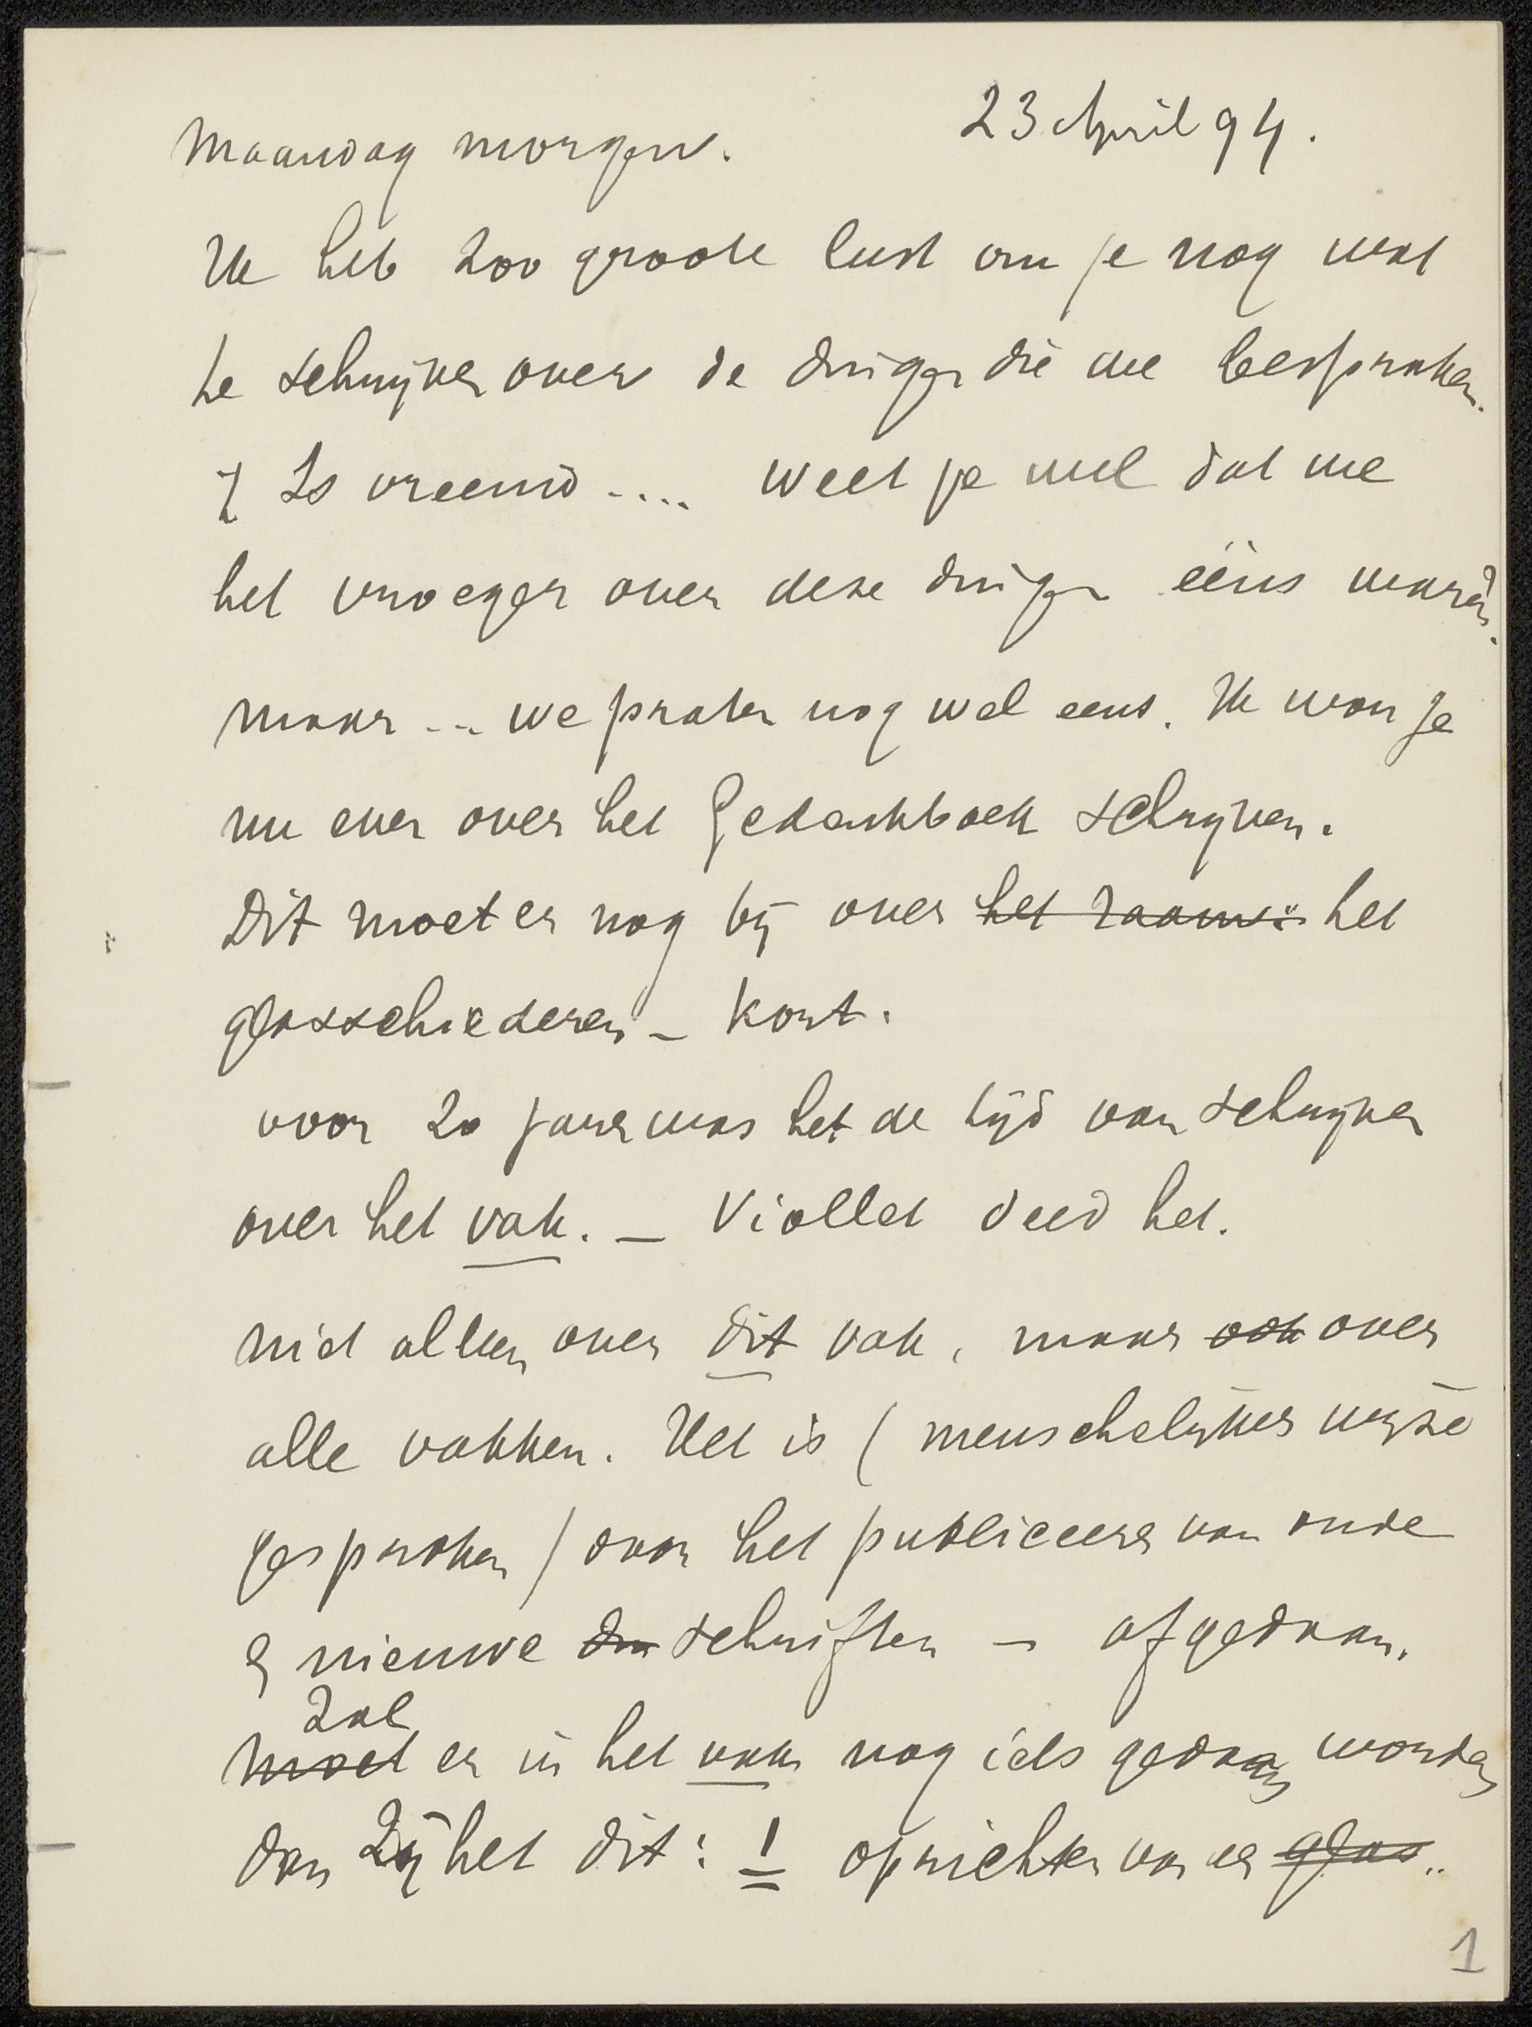 Maandag morgen. 23 April 94.
Ik heb zoo groote lust om je nog wat
te schrijven over de dingen die we bespraken.
't Is vreemd .... weet je wel dat we
het vroeger over deze dingen ééns waren.
maar ... we praten nog wel eens. Ik wou je
nu even over het Gedenkboek schrijven.
Dit moet er nog bij over het raam: het
glasschilderen – kort.
voor 20 jaren was het de tijd van schrijven
over het vak. – Viollet deed het.
niet alleen over dit vak, maar ook over
alle vakken. Het is (menschelijker wijze
gesproken) door het publiceeren van oude
en nieuwe schriften – afgedaan.
zal
moet er in het vak nog iets gedaan worden
dan zij het dit: 1 oprichten van een glas..
1